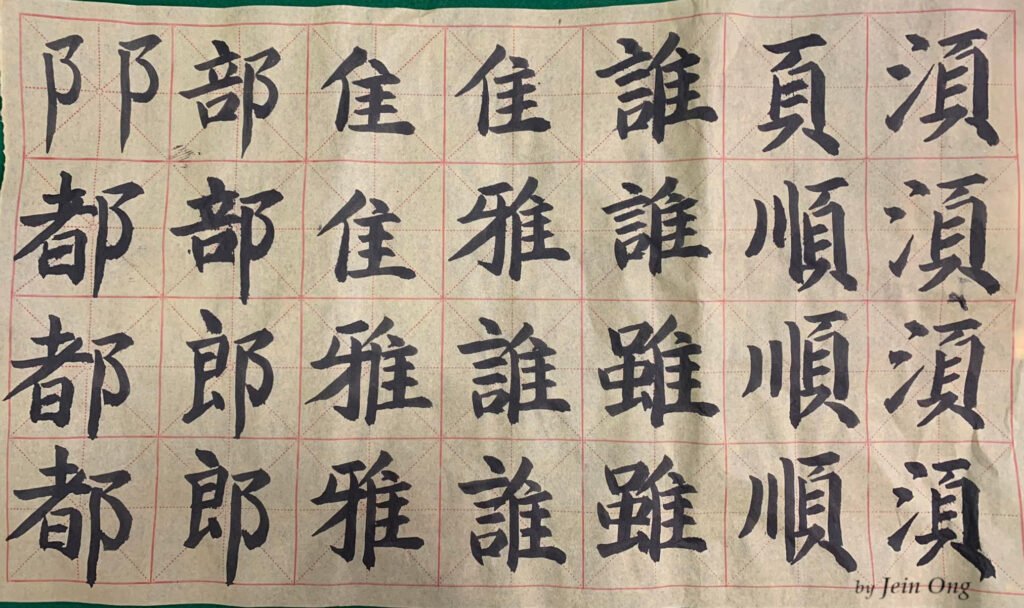 阝阝都都都
部部郎郎
隹隹雅雅
隹雅誰誰
誰誰雖雖
頁順順順
湏湏湏湏
by Jein Ong